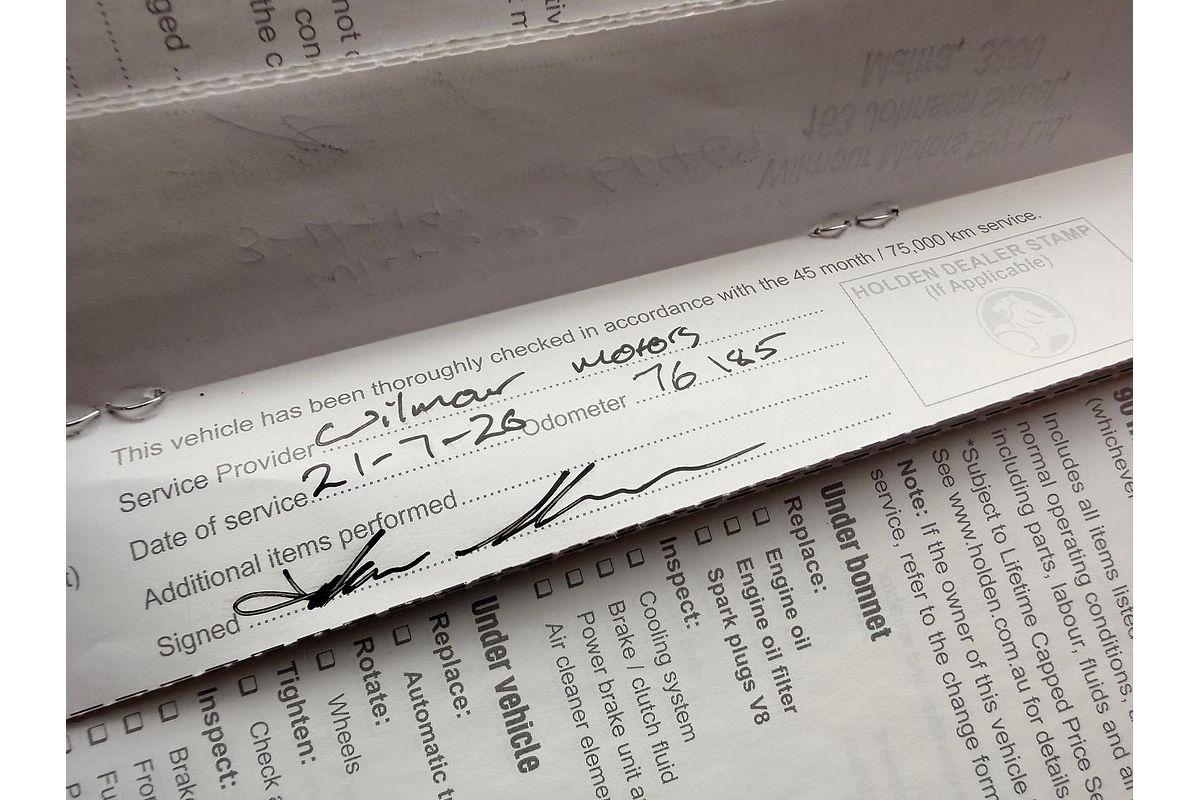 not
con
the c
ged ..
tiv
t m
Wilmour Motors Pty Ltd,
163 Johnson Street,
Maffra, 3860
This vehicle has been thoroughly checked in accordance with the 45 month / 75,000 km service.
Service Provider Wilmour Motors
Date of service 21-7-20 Odometer 76185
Additional items performed
Signed
HOLDEN DEALER STAMP
(If Applicable)
(whichever
Includes all items listed
normal operating conditions,
including parts, labour, fluids and
*Subject to Lifetime Capped Price Se
See www.holden.com.au for details
Note: If the owner of this vehicle
service, refer to the change form
Under bonnet
Replace:
Engine oil
Engine oil filter
Spark plugs V8
Inspect:
Cooling system
Brake / clutch fluid
Power brake unit a
Air cleaner elemen
Under vehicle
Replace:
Automatic t
Rotate:
Wheels
Tighten:
Check
Inspect:
Brak
Fro
Fu